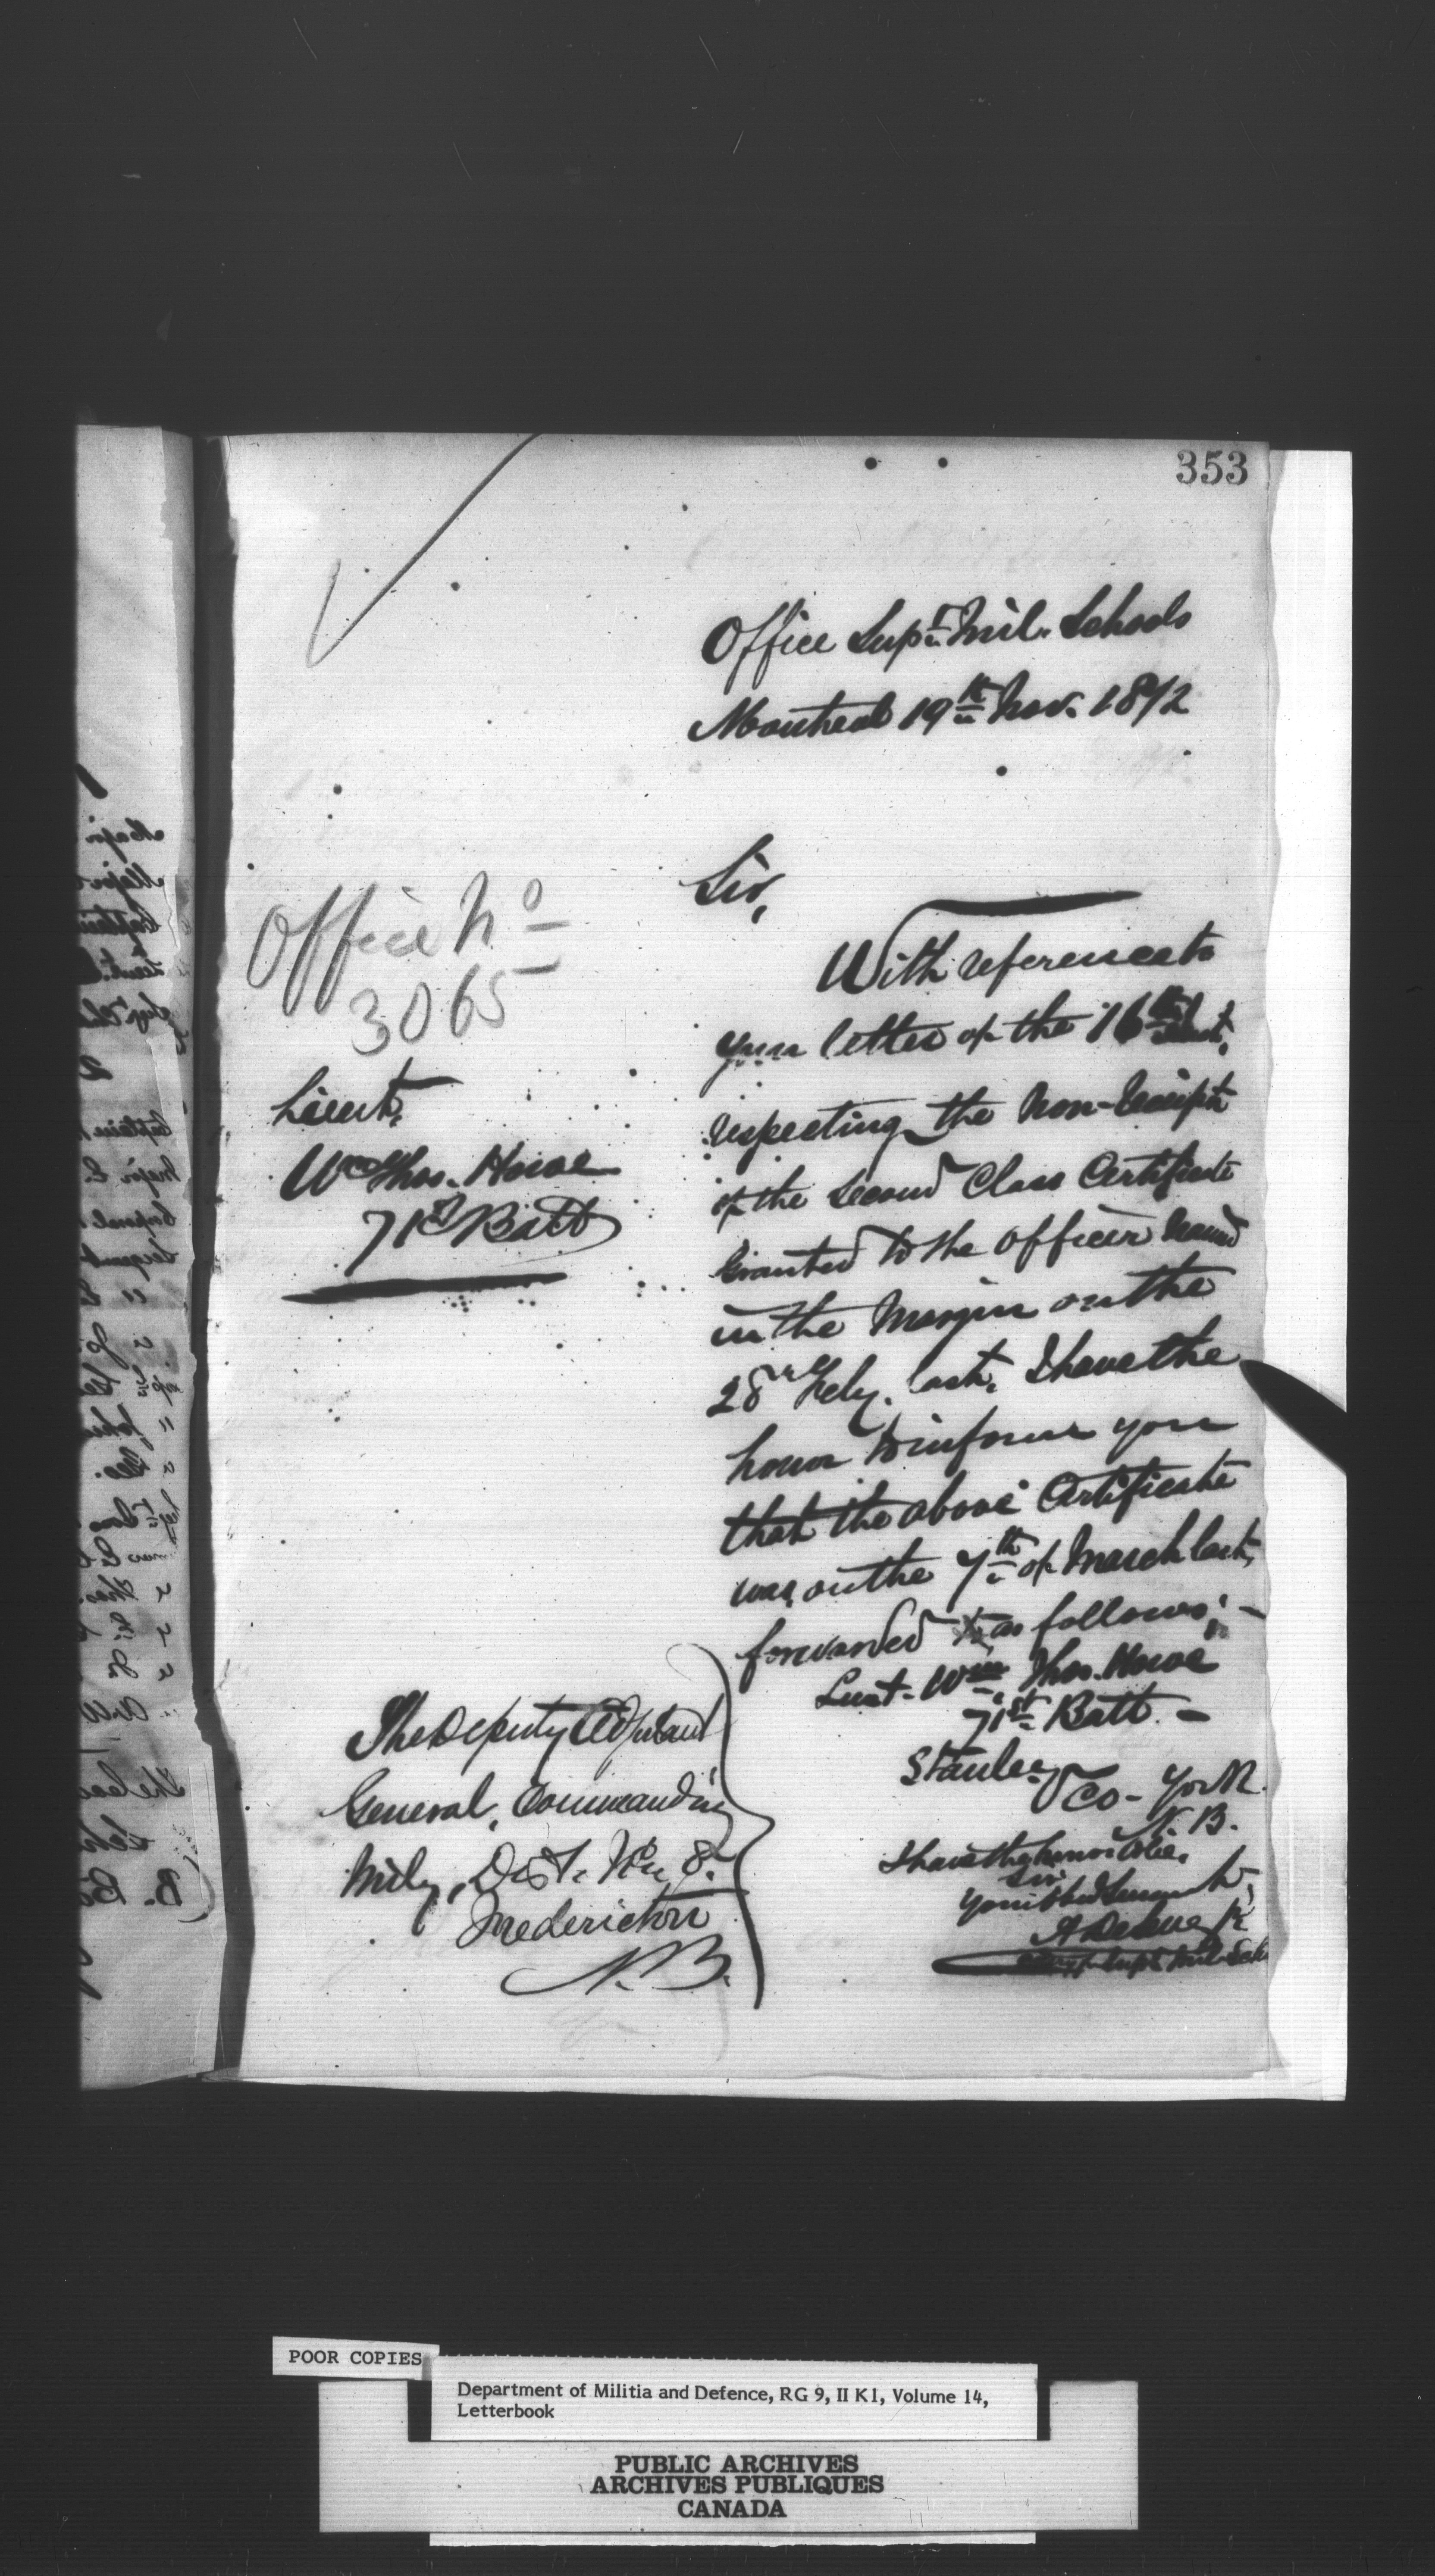 353
Office Supt. Mil. Schools
Montreal 19th Nov. 1872
Sir,
Office No
3065
Lieut.
Wm Thos. Howe
71st Batt
With reference to
your letter of the 16th inst.
respecting the non-receipt
of the Second Class Certificate
Granted to the officer named
in the Margin on the
28th Feby. last. I have the
honor to inform you
that the above Certificate
was, on the 7th of March last,
forwarded as follows; -
Lieut. Wm. Thos. Howe
71st Batt. -
Stanley
Co - York
N. B.
I have the honor to be,
Sir
Your Obed Servant,
Supt Mil Sch
The Deputy Adjutant
General, Commanding
Mily. Dist. No. 8.
Fredericton
N. B.
POOR COPIES
Department of Militia and Defence, RG 9, II K1, Volume 14,
Letterbook
PUBLIC ARCHIVES
ARCHIVES PUBLIQUES
CANADA